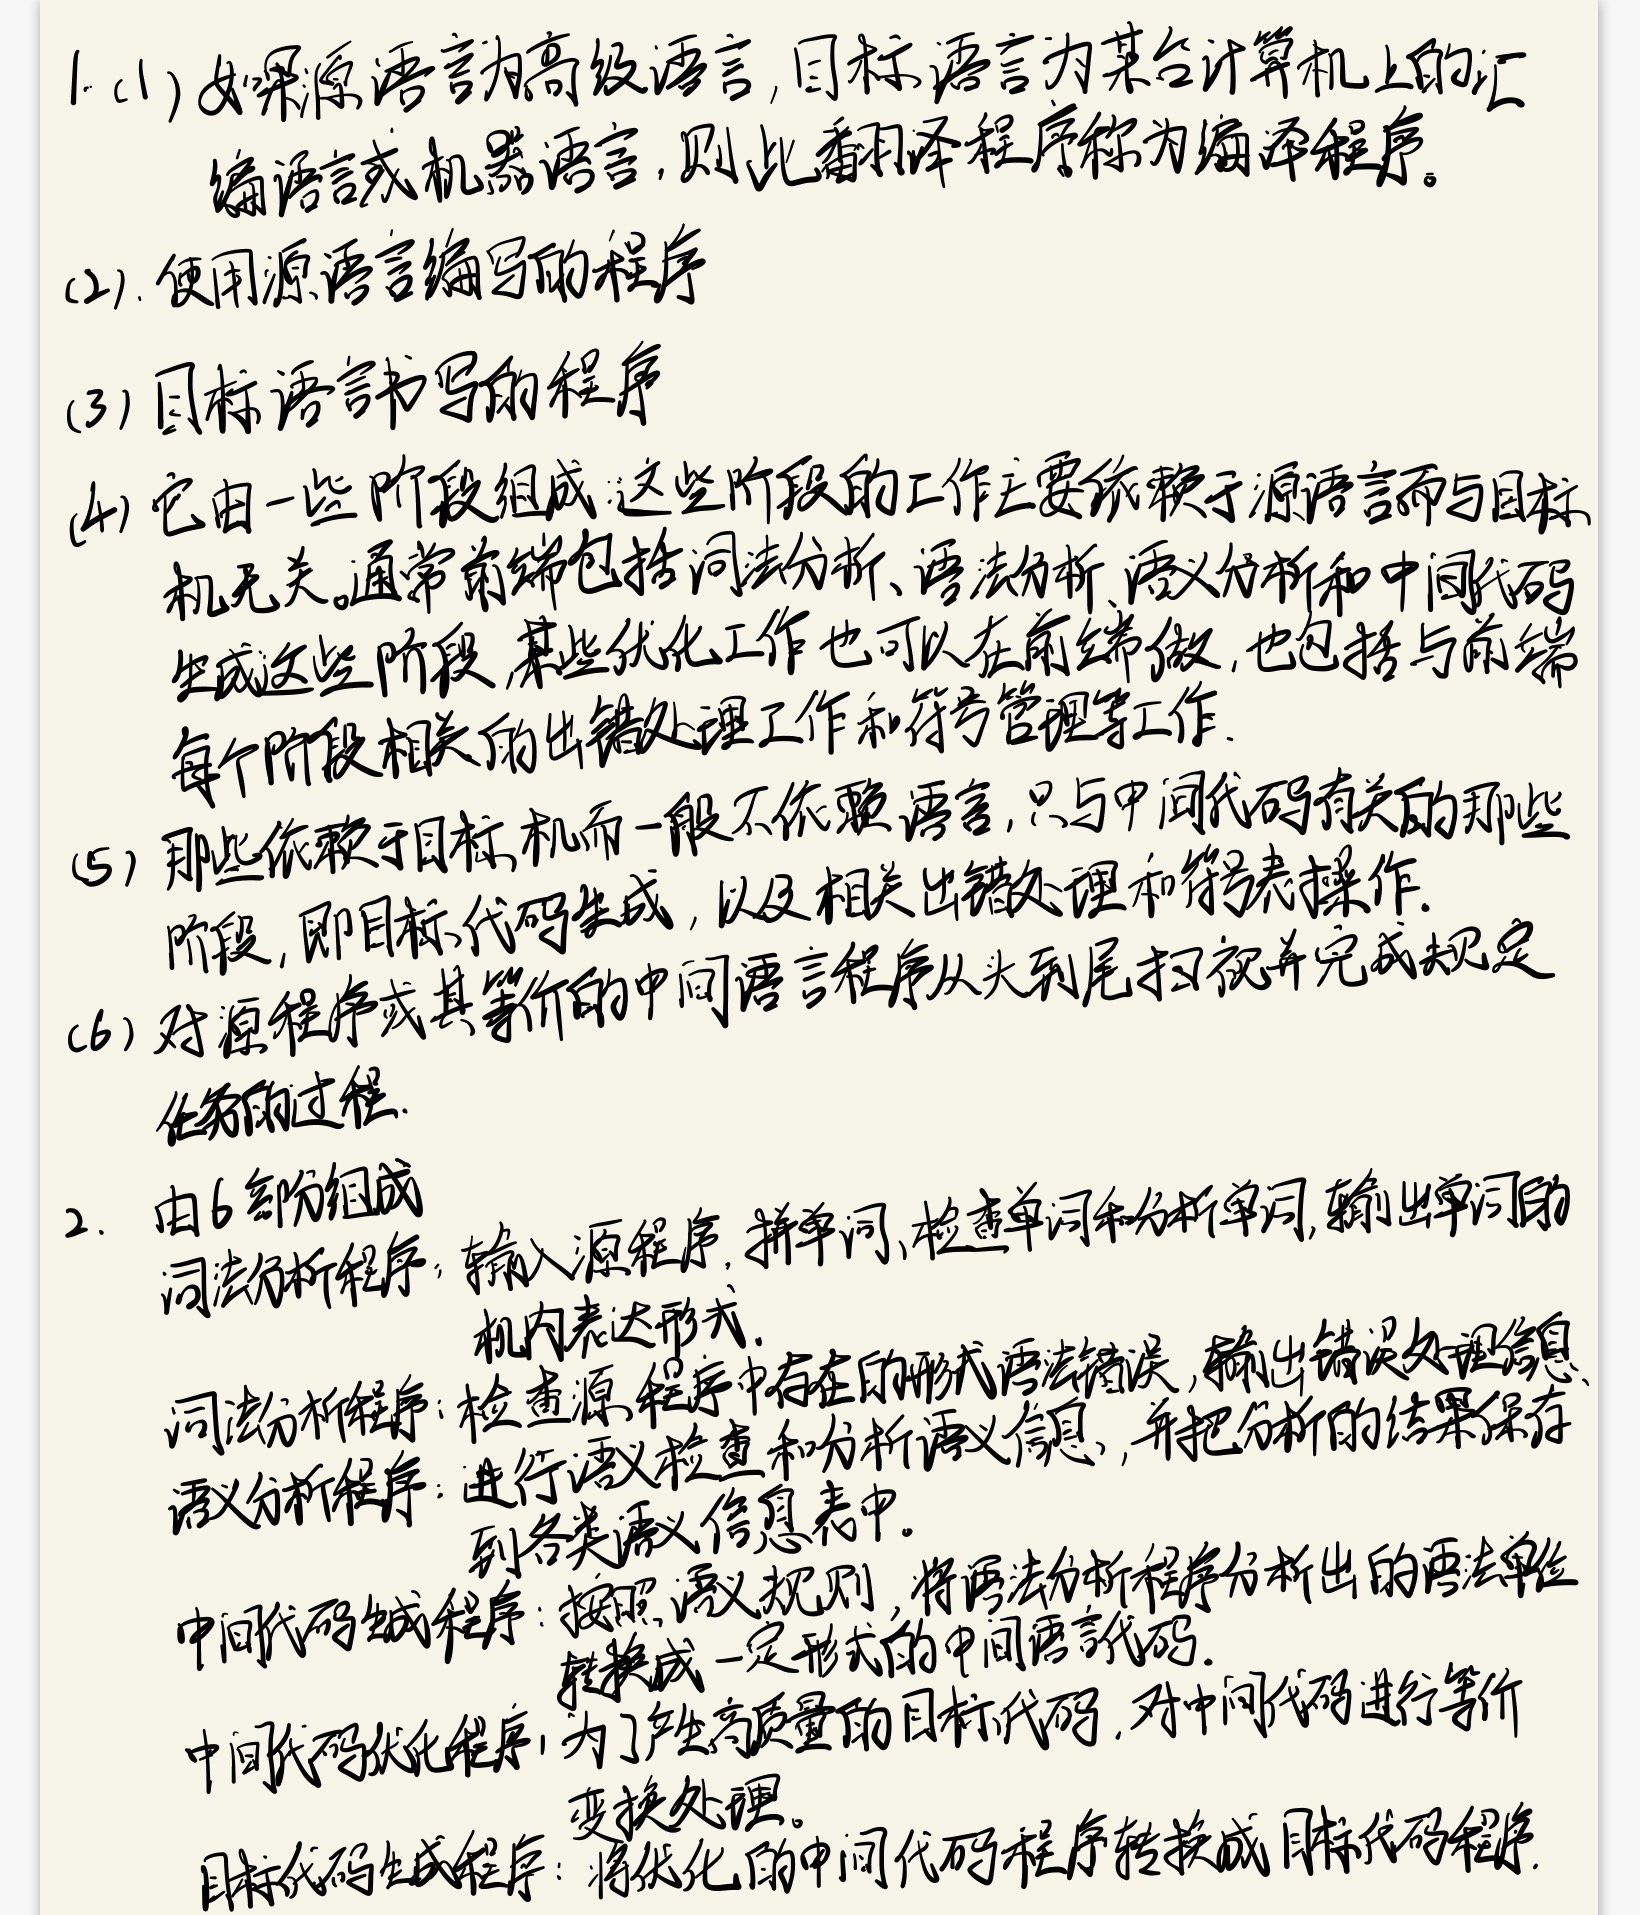 1.(1) 如果源语言为高级语言,目标语言为某台计算机上的汇
编语言或机器语言,则此翻译程序称为编译程序。
(2).使用源语言编写的程序
(3)目标语言书写的程序
(4)它由一些阶段组成:这些阶段的工作主要依赖于源语言而与目标
机无关。通常前端包括词法分析、语法分析、语义分析和中间代码
生成这些阶段,某些优化工作也可以在前端做,也包括与前端
每个阶段相关的出错处理工作和符号管理等工作.
(5)那些依赖于目标机而一般不依赖语言,只与中间代码有关的那些
阶段,即目标代码生成,以及相关出错处理和符号表操作.
(6)对源程序或其等价的中间语言程序从头到尾扫视并完成规定
任务的过程.
2. 由6部份组成
词法分析程序:输入源程序,拼单词、检查单词和分析单词,输出单词的
机内表达形式.
词法分析程序:检查源程序中存在的形式语法错误,输出错误处理信息、
语义分析程序:进行语义检查和分析语义信息,并把分析的结果保存
到各类语义信息表中。
中间代码生成程序:按照语义规则,将语法分析程序分析出的语法单位
转换成一定形式的中间语言代码.
中间代码优化程序:为了产生高质量的目标代码,对中间代码进行等价
变换处理。
目标代码生成程序:将优化的中间代码程序转换成目标代码程序.